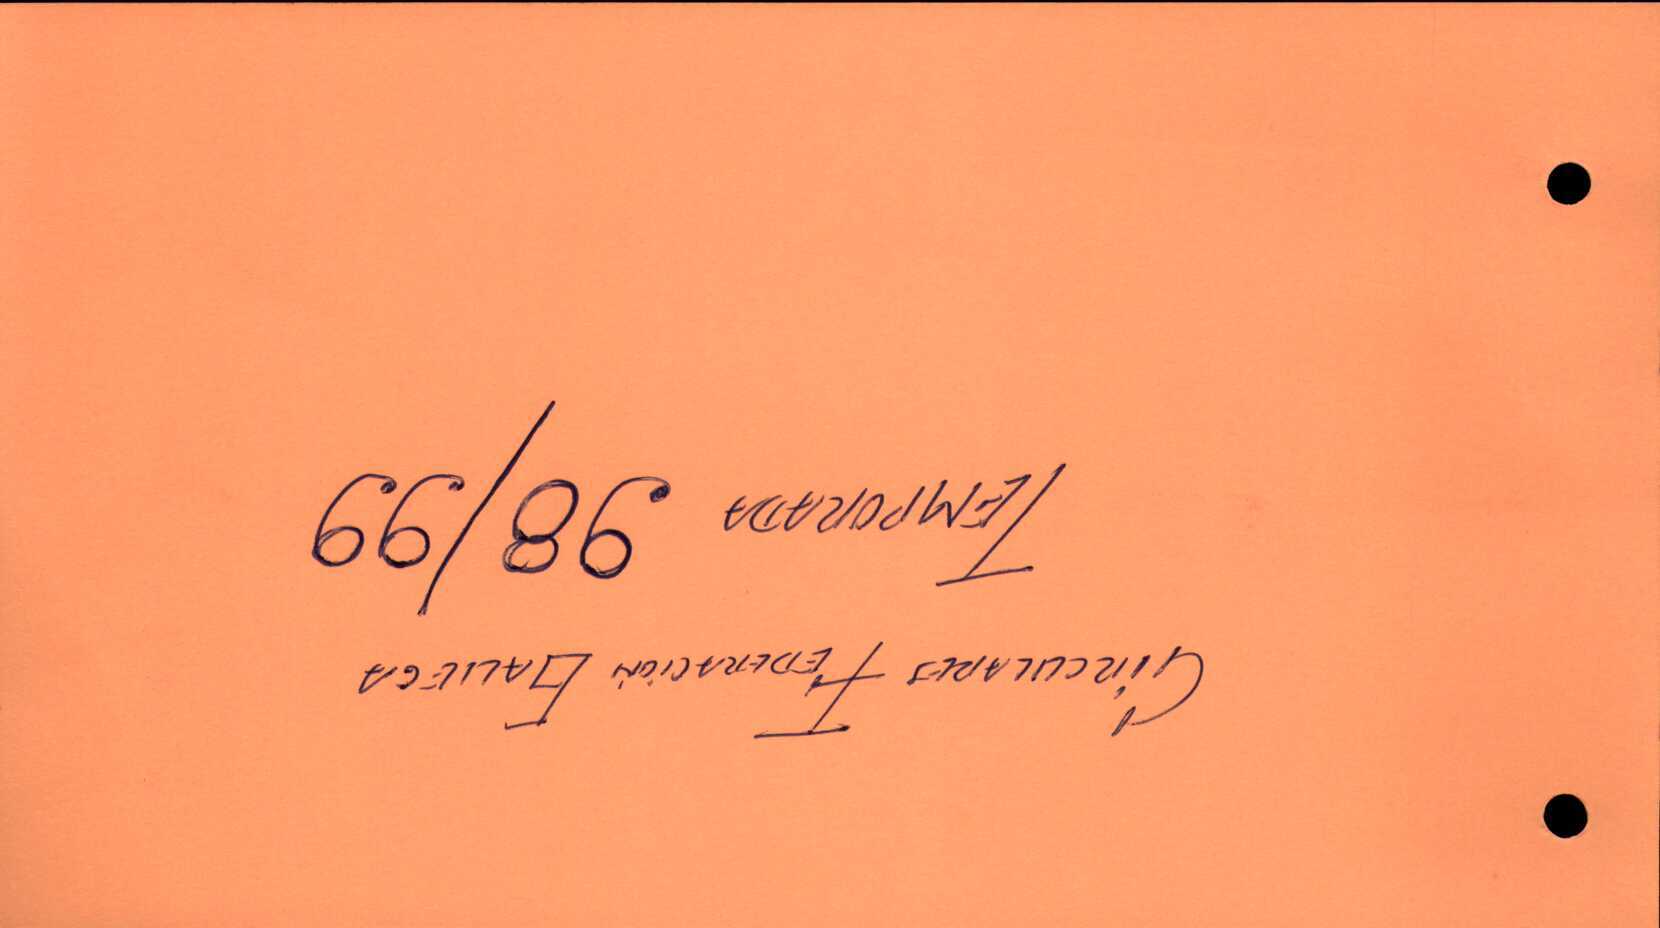 CIRCULARES FEDERACIÓN GALLEGA
TEMPORADA 98/99